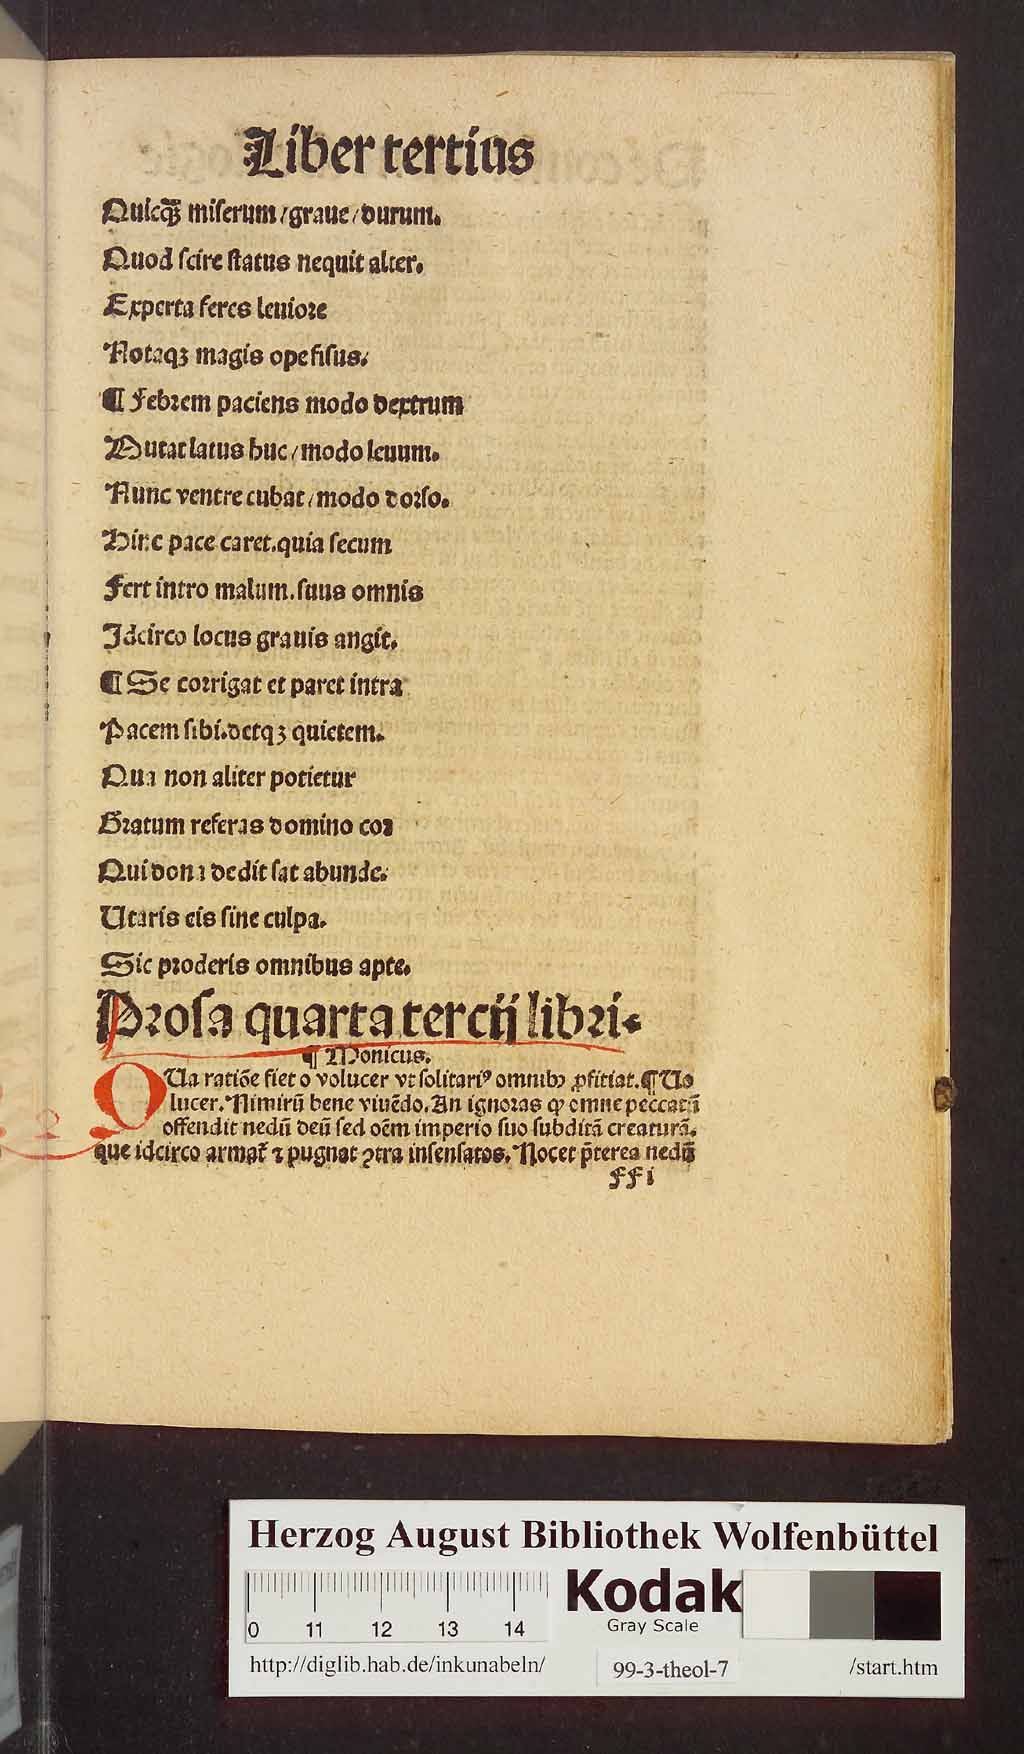 Liber tertius
Quicqꝫ miserum / graue / durum.
Quod scire status nequit alter.
Experta feres leuiore
Notaqꝫ magis ope fisus.
¶ Febrem paciens modo dextrum
Mutat latus huc / modo leuum.
Nunc ventre cubat / modo dorso.
Hinc pace caret. quia secum
Fert intro malum. suus omnis
Idcirco locus grauis angit.
¶ Se corrigat et paret intra
Pacem sibi. detqꝫ quietem.
Qua non aliter potietur
Gratum referas domino cor
Qui dona dedit sat abunde.
Utaris eis sine culpa.
Sic proderis omnibus apte.
Prosa quarta tercij libri.
¶ Monicus.
QUa ratiõe fiet o volucer vt solitariꝰ omnibꝫ ꝓfitiat. ¶ Uo
lucer. Nimirũ bene viuẽdo. An ignoras ꝙ omne peccatũ
offendit nedũ deũ sed oẽm imperio suo subditã creaturã.
que idcirco armat̃ ⁊ pugnat ꝯtra insensatos. Nocet p̃terea nedũ
ff i
Herzog August Bibliothek Wolfenbüttel
0 11 12 13 14
Kodak
Gray Scale
http://diglib.hab.de/inkunabeln/ 99-3-theol-7 /start.htm